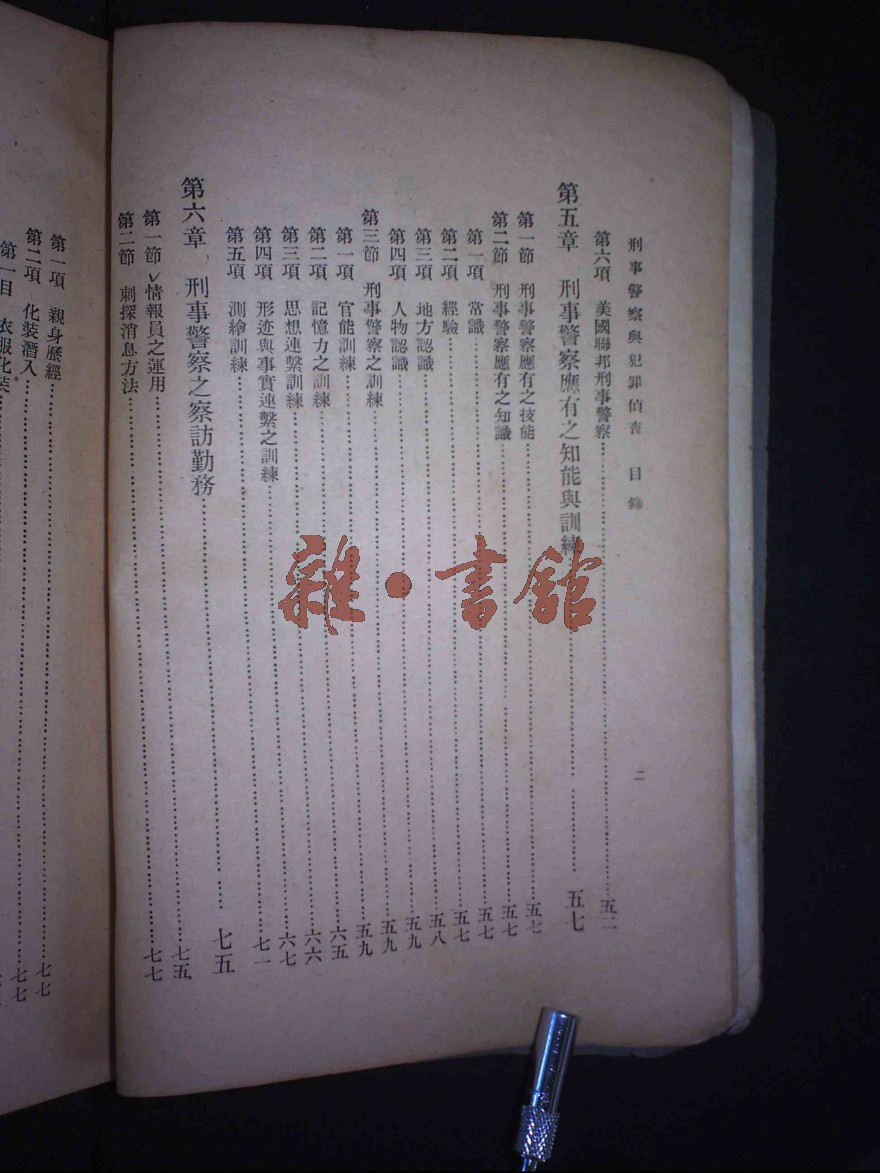 刑事警察與犯罪偵查 目錄
二
第六項 美國聯邦刑事警察 五二
第五章 刑事警察應有之知能與訓練 五七
第一節 刑事警察應有之技能 五七
第二節 刑事警察應有之知識 五七
第一項 常識 五七
第二項 經驗 五七
第三項 地方認識 五八
第四項 人物認識 五九
第三節 刑事警察之訓練 五九
第一項 官能訓練 五九
第二項 記憶力之訓練 六五
第三項 思想連繫訓練 六六
第四項 形迹與事實連繫之訓練 六七
第五項 測繪訓練 七一
第六章 刑事警察之察訪勤務 七五
第一節 情報員之運用 七五
第二節 刺探消息方法 七七
第一項 親身歷經 七七
第二項 化裝潛入 七七
第一目 衣服化装
雜·書館